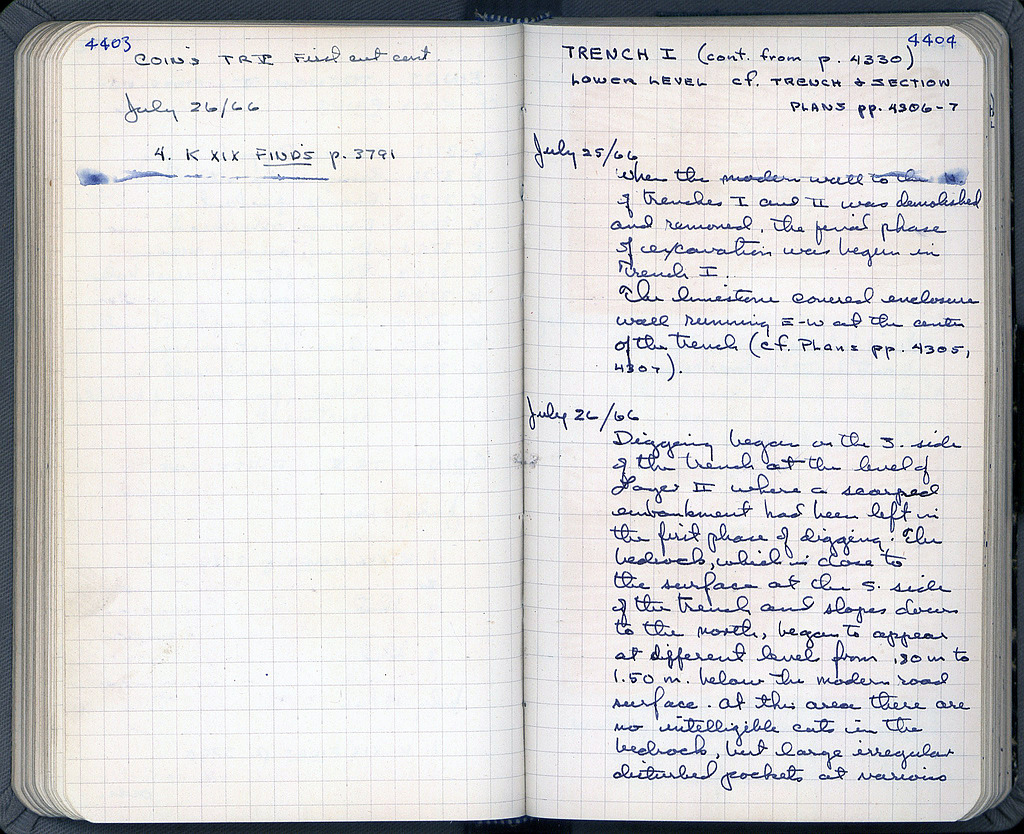 4403
COINS TR I Final cut cont.
July 26/66
4. K XIX FINDS p. 3791
4404
TRENCH I (cont. from p. 4330)
LOWER LEVEL cf. TRENCH & SECTION
PLANS pp. 4306-7
July 25/66
When the modern wall to the
of trenches I and II was demolished
and removed, the final phase
of excavation was begun in
Trench I.
The limestone covered enclosure
wall running E-W at the center
of the trench (cf. Plans pp. 4305,
4307).
July 26/66
Digging began on the S. side
of the trench at the level of
Layer II where a scarped
embankment had been left in
the first phase of digging. The
bedrock, which is close to
the surface at the S. side
of the trench and slopes down
to the north, began to appear
at different levels from .80 m to
1.50 m. below the modern road
surface. At this area there are
no intelligible cuts in the
bedrock, but large irregular
disturbed pockets at various